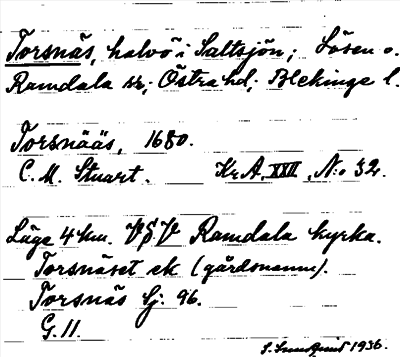 Torsnäs, halvö i Saltsjön; Lösen o.
Ramdala sr; Östra hd; Blekinge l.
Torsnääs, 1680.
C. M. Stuart. Kr A, XXII, N:o 32.
Läge 4 km. VSV Ramdala kyrka.
Torsnäset ek (gårdsnamn).
Torsnäs Gj: 96.
G. 11.
1936.